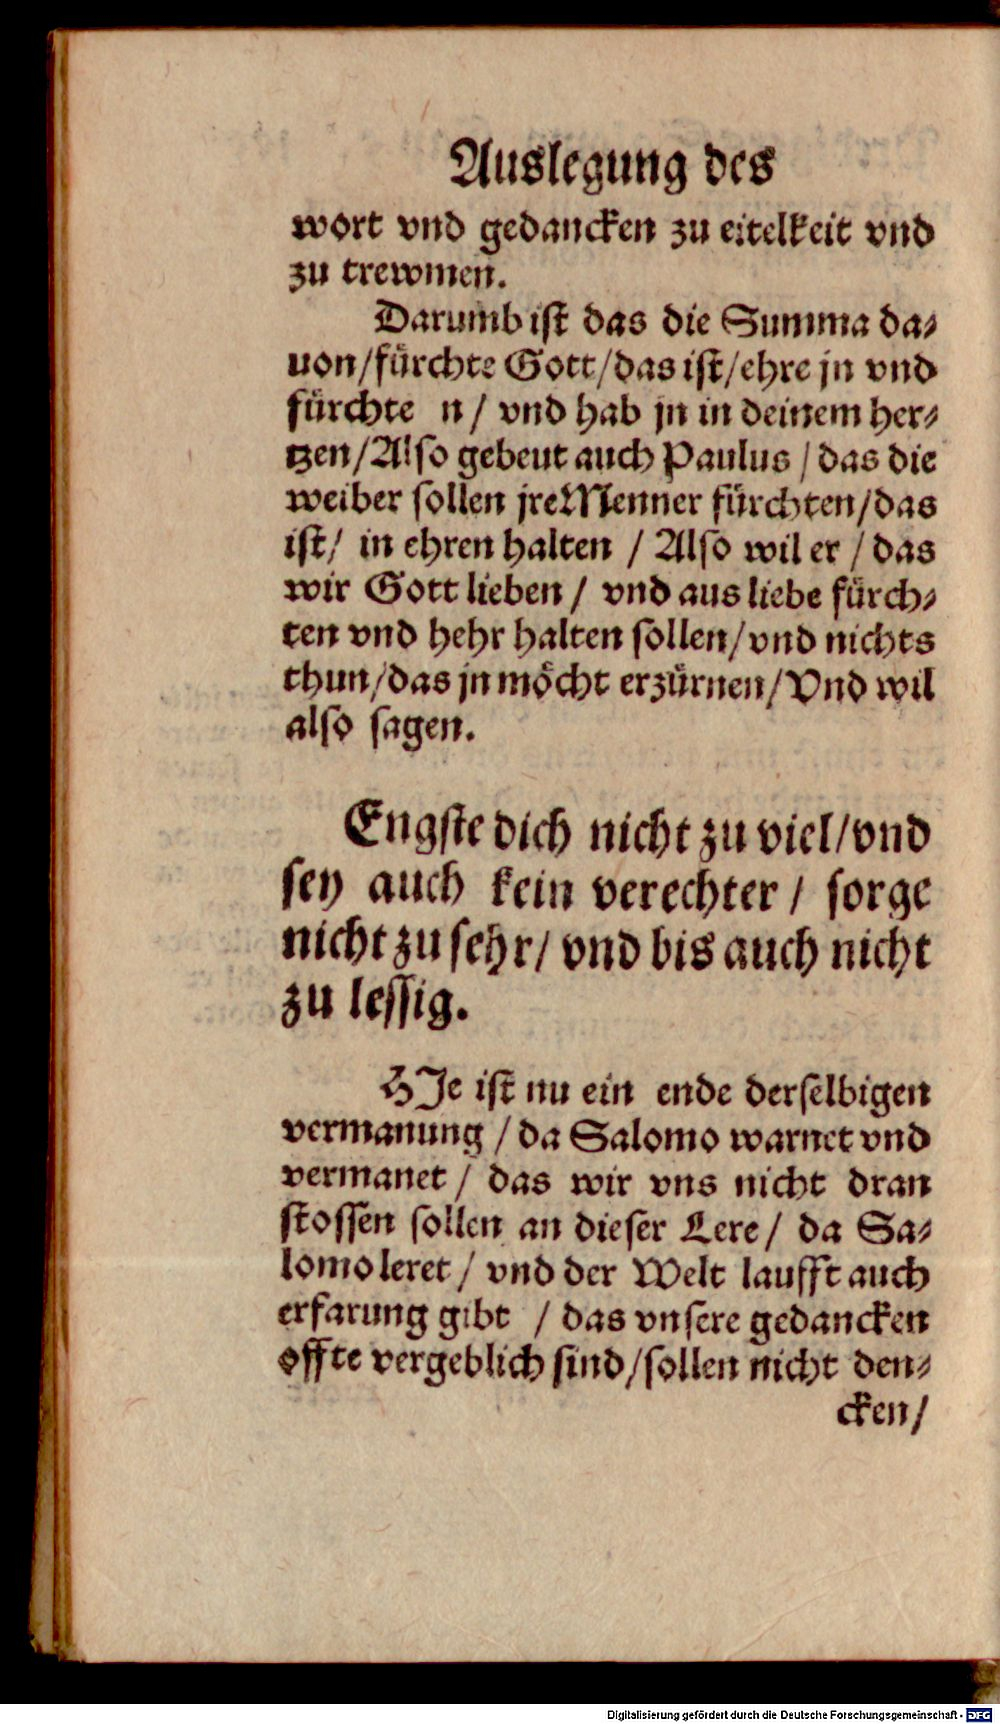 Auslegung des
wort vnd gedancken zu eitelkeit vnd
zu trewmen.
Darumb ist das die Summa da⸗
uon/fürchte Gott/das ist/ehre jn vnd
fürchte n/ vnd hab jn in deinem her⸗
tzen/Also gebeut auch Paulus/das die
weiber sollen jreMenner fürchten/das
ist/ in ehren halten / Also wil er / das
wir Gott lieben / vnd aus liebe fürch⸗
ten vnd hehr halten sollen/vnd nichts
thun/das jn möcht erzürnen/Vnd wil
also sagen.
Engste dich nicht zu viel/vnd
sey auch kein verechter/ sorge
nicht zu sehr/ vnd bis auch nicht
zu lessig.
HJe ist nu ein ende derselbigen
vermanung / da Salomo warnet vnd
vermanet / das wir vns nicht dran
stossen sollen an dieser Lere/ da Sa⸗
lomo leret / vnd der Welt laufft auch
erfarung gibt / das vnsere gedancken
offte vergeblich sind/sollen nicht den⸗
cken/
Digitalisierung gefördert durch die Deutsche Forschungsgemeinschaft - DFG